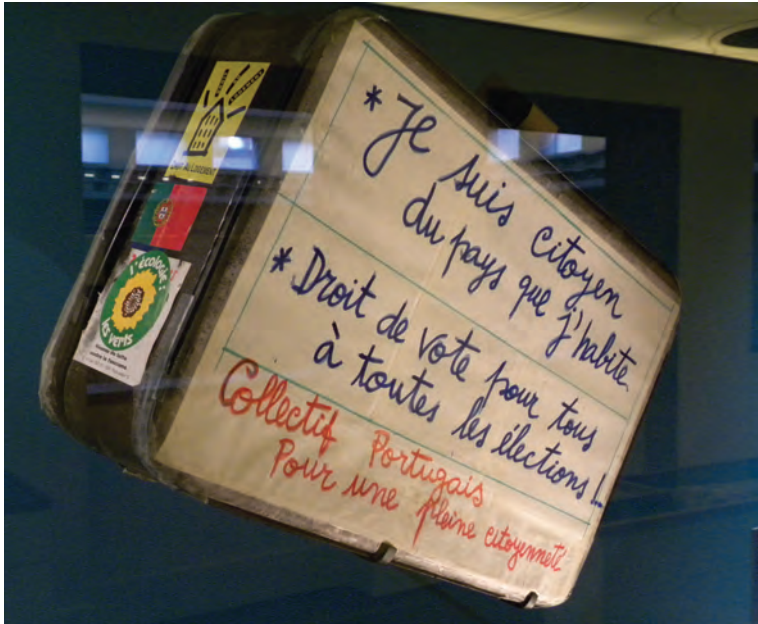 * Je suis citoyen
du pays que j'habite.
* Droit de vote pour tous
à toutes les élections!
Collectif Portugais
Pour une pleine citoyenneté
DROIT AU LOGEMENT
l'écologie:
les verts